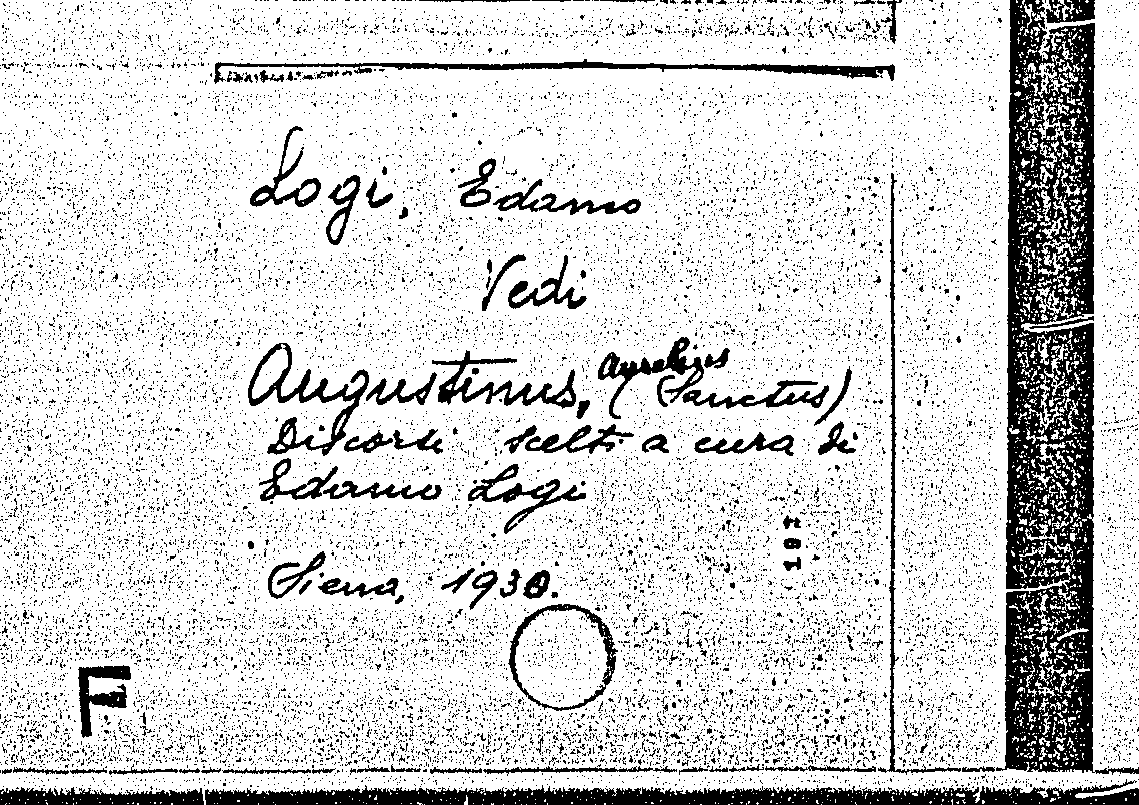 Logi, Edamo
Vedi
Augustinus, Aurelius (Sanctus)
Discorsi scelti a cura di
Edamo Logi
Siena, 1930.
197
F